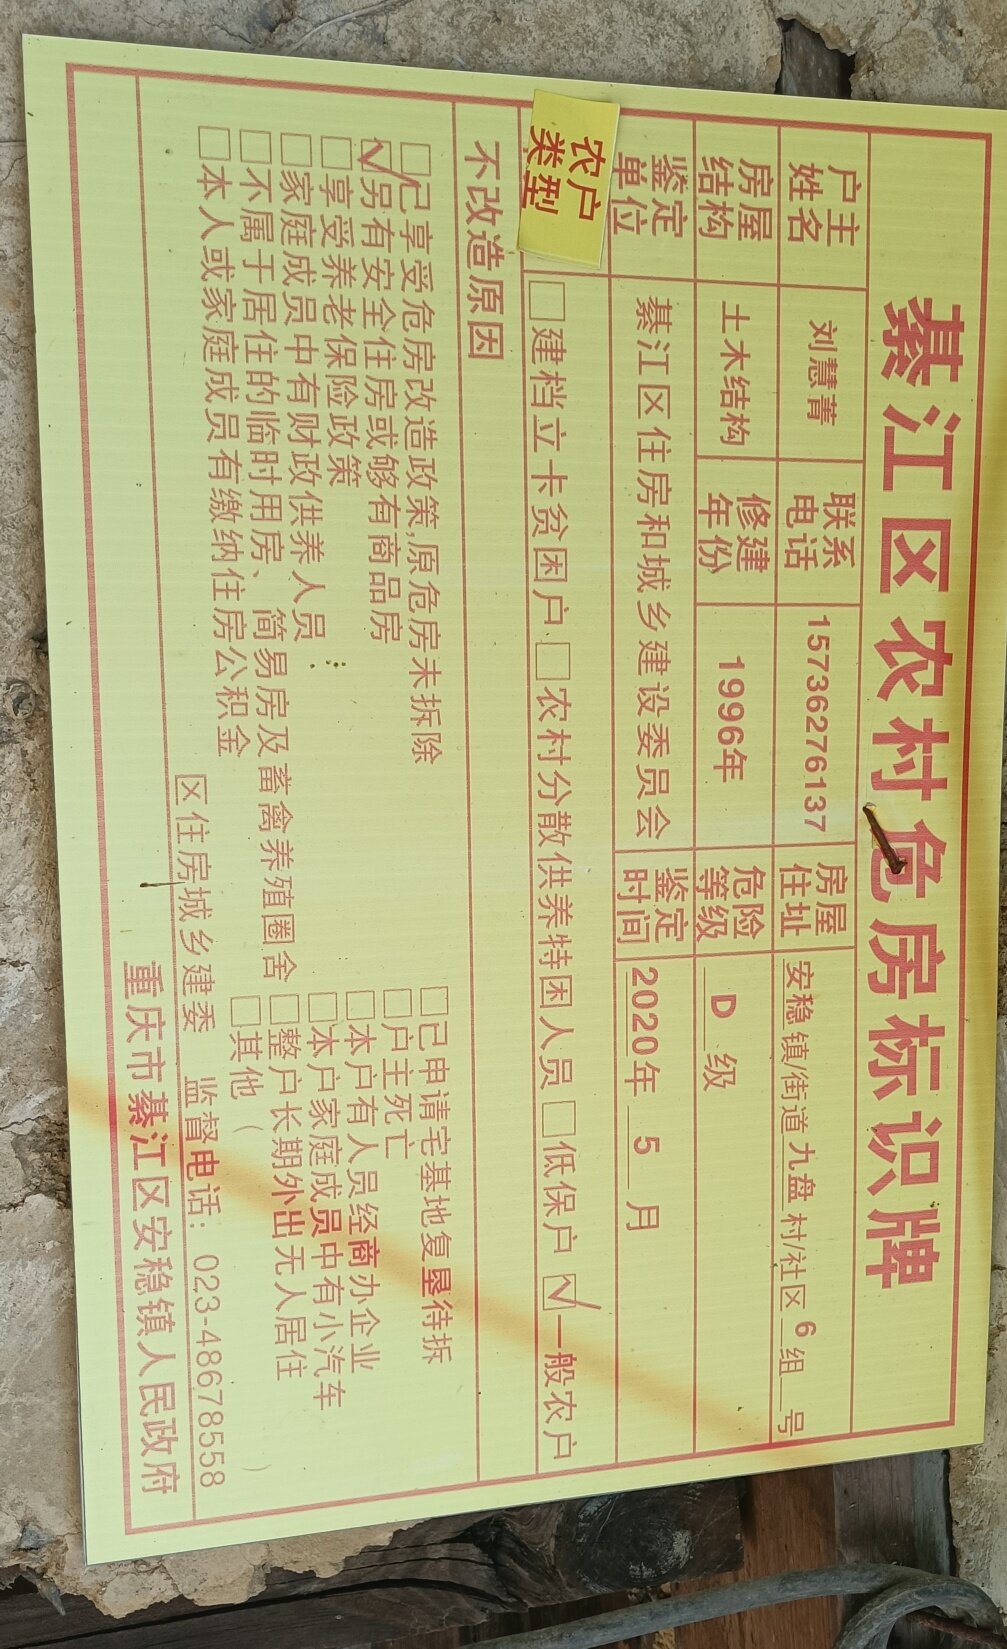 綦江区农村危房标识牌
户主姓名 刘慧菁 联系电话 15736276137 房屋住址 安稳镇/街道九盘村/社区6组__号
房屋结构 土木结构 修建年份 1996年 危险等级 D级
鉴定单位 綦江区住房和城乡建设委员会 鉴定时间 2020年5月
农户类型 □建档立卡贫困户 □农村分散供养特困人员 □低保户 ☑一般农户
不改造原因
□已享受危房改造政策,原危房未拆除 □已申请宅基地复垦待拆
☑另有安全住房或够有商品房 □户主死亡
□享受养老保险政策 □本户有人员经商办企业
□家庭成员中有财政供养人员 □本户家庭成员中有小汽车
□不属于居住的临时用房、简易房及畜禽养殖圈舍 □整户长期外出无人居住
□本人或家庭成员有缴纳住房公积金 □其他（ ）
区住房城乡建委 监督电话：023-48678558
重庆市綦江区安稳镇人民政府